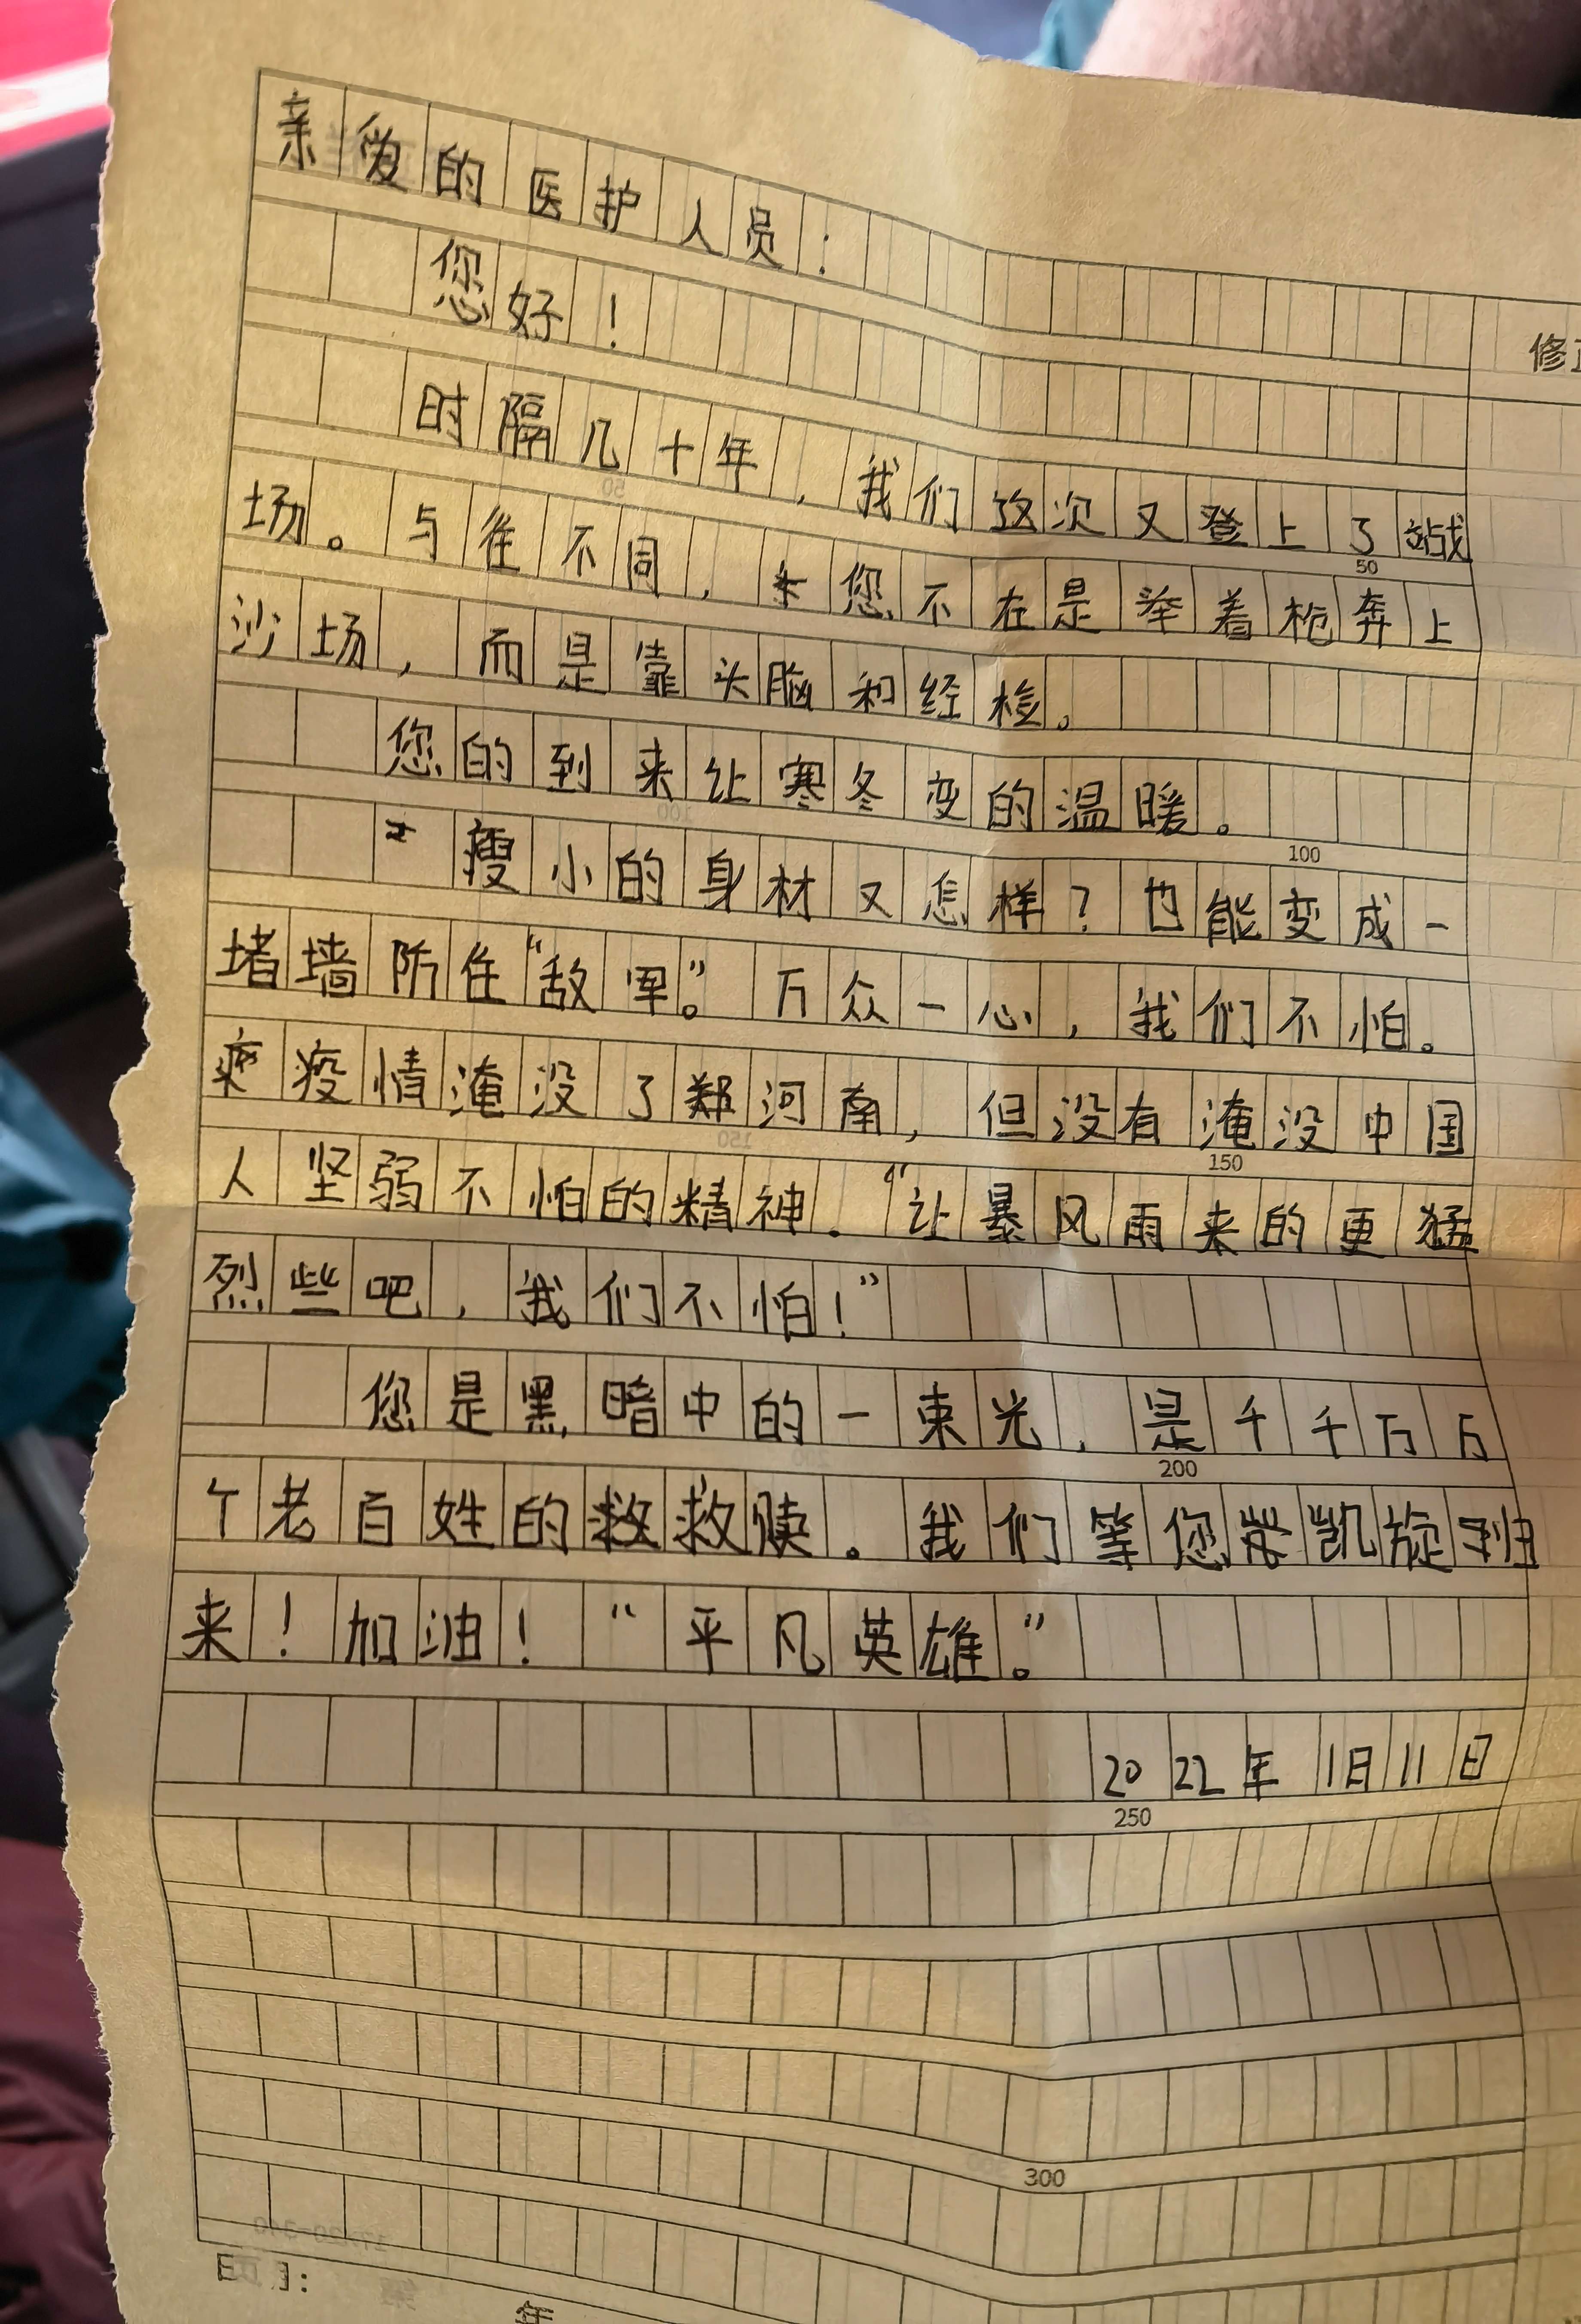 亲爱的医护人员：
您好！
时隔几十年，我们这次又登上了战
50
场。与往不同，您不在是举着枪奔上
沙场，而是靠头脑和经检。
您的到来让寒冬变的温暖。
100
瘦小的身材又怎样？也能变成一
堵墙防住“敌军。”万众一心，我们不怕。
疫情淹没了河南，但没有淹没中国
150
人坚弱不怕的精神．“让暴风雨来的更猛
烈些吧，我们不怕！”
您是黑暗中的一束光，是千千万万
200
个老百姓的救赎。我们等您凯旋归
来！加油！“平凡英雄。”
2022年1日11日
250
300
年